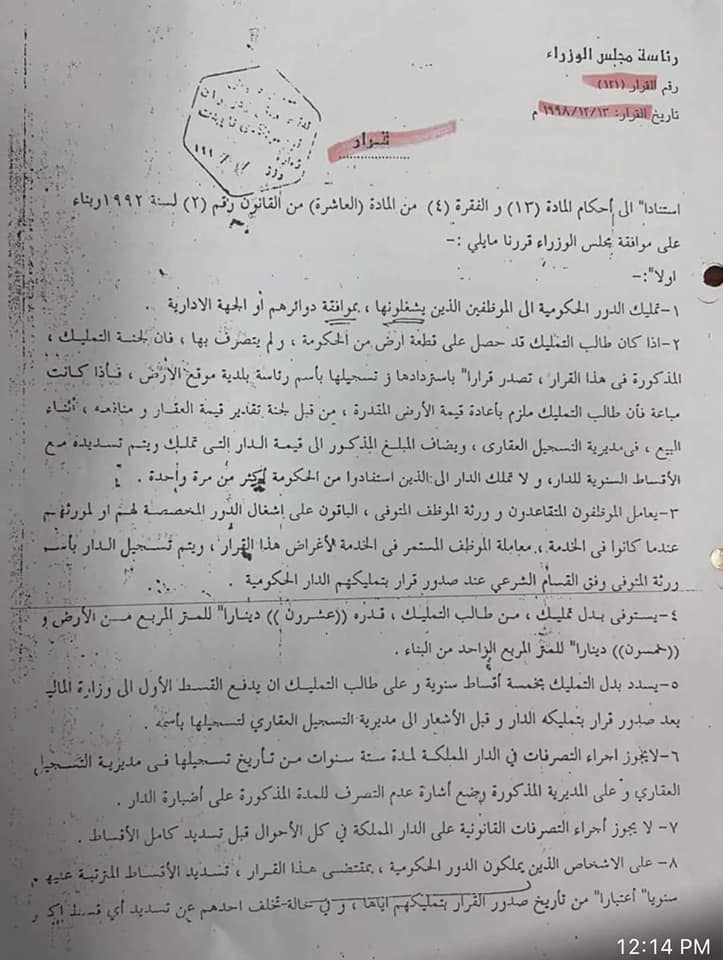 رئاسة مجلس الوزراء
رقم القرار (١٢١)
تاريخ القرار: ١٩٩٨/١٢/١٣ م
قرار
استنادا" الى أحكام المادة (١٣) و الفقرة (٤) من المادة (العاشرة) من القانون رقم (٢) لسنة ١٩٩٢ وبناء
على موافقة مجلس الوزراء قررنا مايلي :-
اولا":-
١-تمليك الدور الحكومية الى الموظفين الذين يشغلونها ، بموافقة دوائرهم أو الجهة الادارية .
٢-اذا كان طالب التمليك قد حصل على قطعة ارض من الحكومة ، ولم يتصرف بها ، فان لجنة التمليك ،
المذكورة فى هذا القرار ، تصدر قرارا" باستردادها ز تسجيلها بأسم رئاسة بلدية موقع الأرض ، فأذا كانت
مباعة فأن طالب التمليك ملزم بأعادة قيمة الأرض المقدرة ، من قبل لجنة تقدير قيمة العقار و منافعه ، أثناء
البيع ، فى مديرية التسجيل العقارى ، ويضاف المبلغ المذكور الى قيمة الدار التى تملك ويتم تسديده مع
الأقساط السنوية للدار، و لا تملك الدار الى الذين استفادوا من الحكومة لأكثر من مرة واحدة .
٣-يعامل الموظفون المتقاعدون و ورثة الموظف المتوفى ، الباقون على إشغال الدور المخصصة لهم او لمورثهم
عندما كانوا فى الخدمة ، معاملة الموظف المستمر فى الخدمة لأغراض هذا القرار ، ويتم تسجيل الدار بأسم
ورثة المتوفى وفق القسام الشرعي عند صدور قرار بتمليكهم الدار الحكومية .
٤-يستوفى بدل تمليك ، من طالب التمليك ، قدره ((عشرون )) دينارا" للمتر المربع من الأرض و
((خمسون)) دينارا" للمتر المربع الواحد من البناء .
٥-يسدد بدل التمليك بخمسة أقساط سنوية و على طالب التمليك ان يدفع القسط الأول الى وزارة المالي
بعد صدور قرار بتمليكه الدار و قبل الأشعار الى مديرية التسجيل العقاري لتسجيلها بأسمه .
٦-لايجوز اجراء التصرفات في الدار المملكة لمدة ستة سنوات من تأريخ تسجيلها فى مديرية التسجيل
العقاري و على المديرية المذكورة وضع أشارة عدم التصرف للمدة المذكورة على أضبارة الدار .
٧- لا يجوز أجراء التصرفات القانونية على الدار المملكة في كل الأحوال قبل تسديد كامل الأقساط .
٨- على الاشخاص الذين يملكون الدور الحكومية ، بمقتضى هذا القرار ، تسديد الأقساط المترتبة عليهم
سنويا" أعتبارا" من تأريخ صدور القرار بتمليكهم اياها ، و في حالة تخلف احدهم عن تسديد أي قسط
12:14 PM